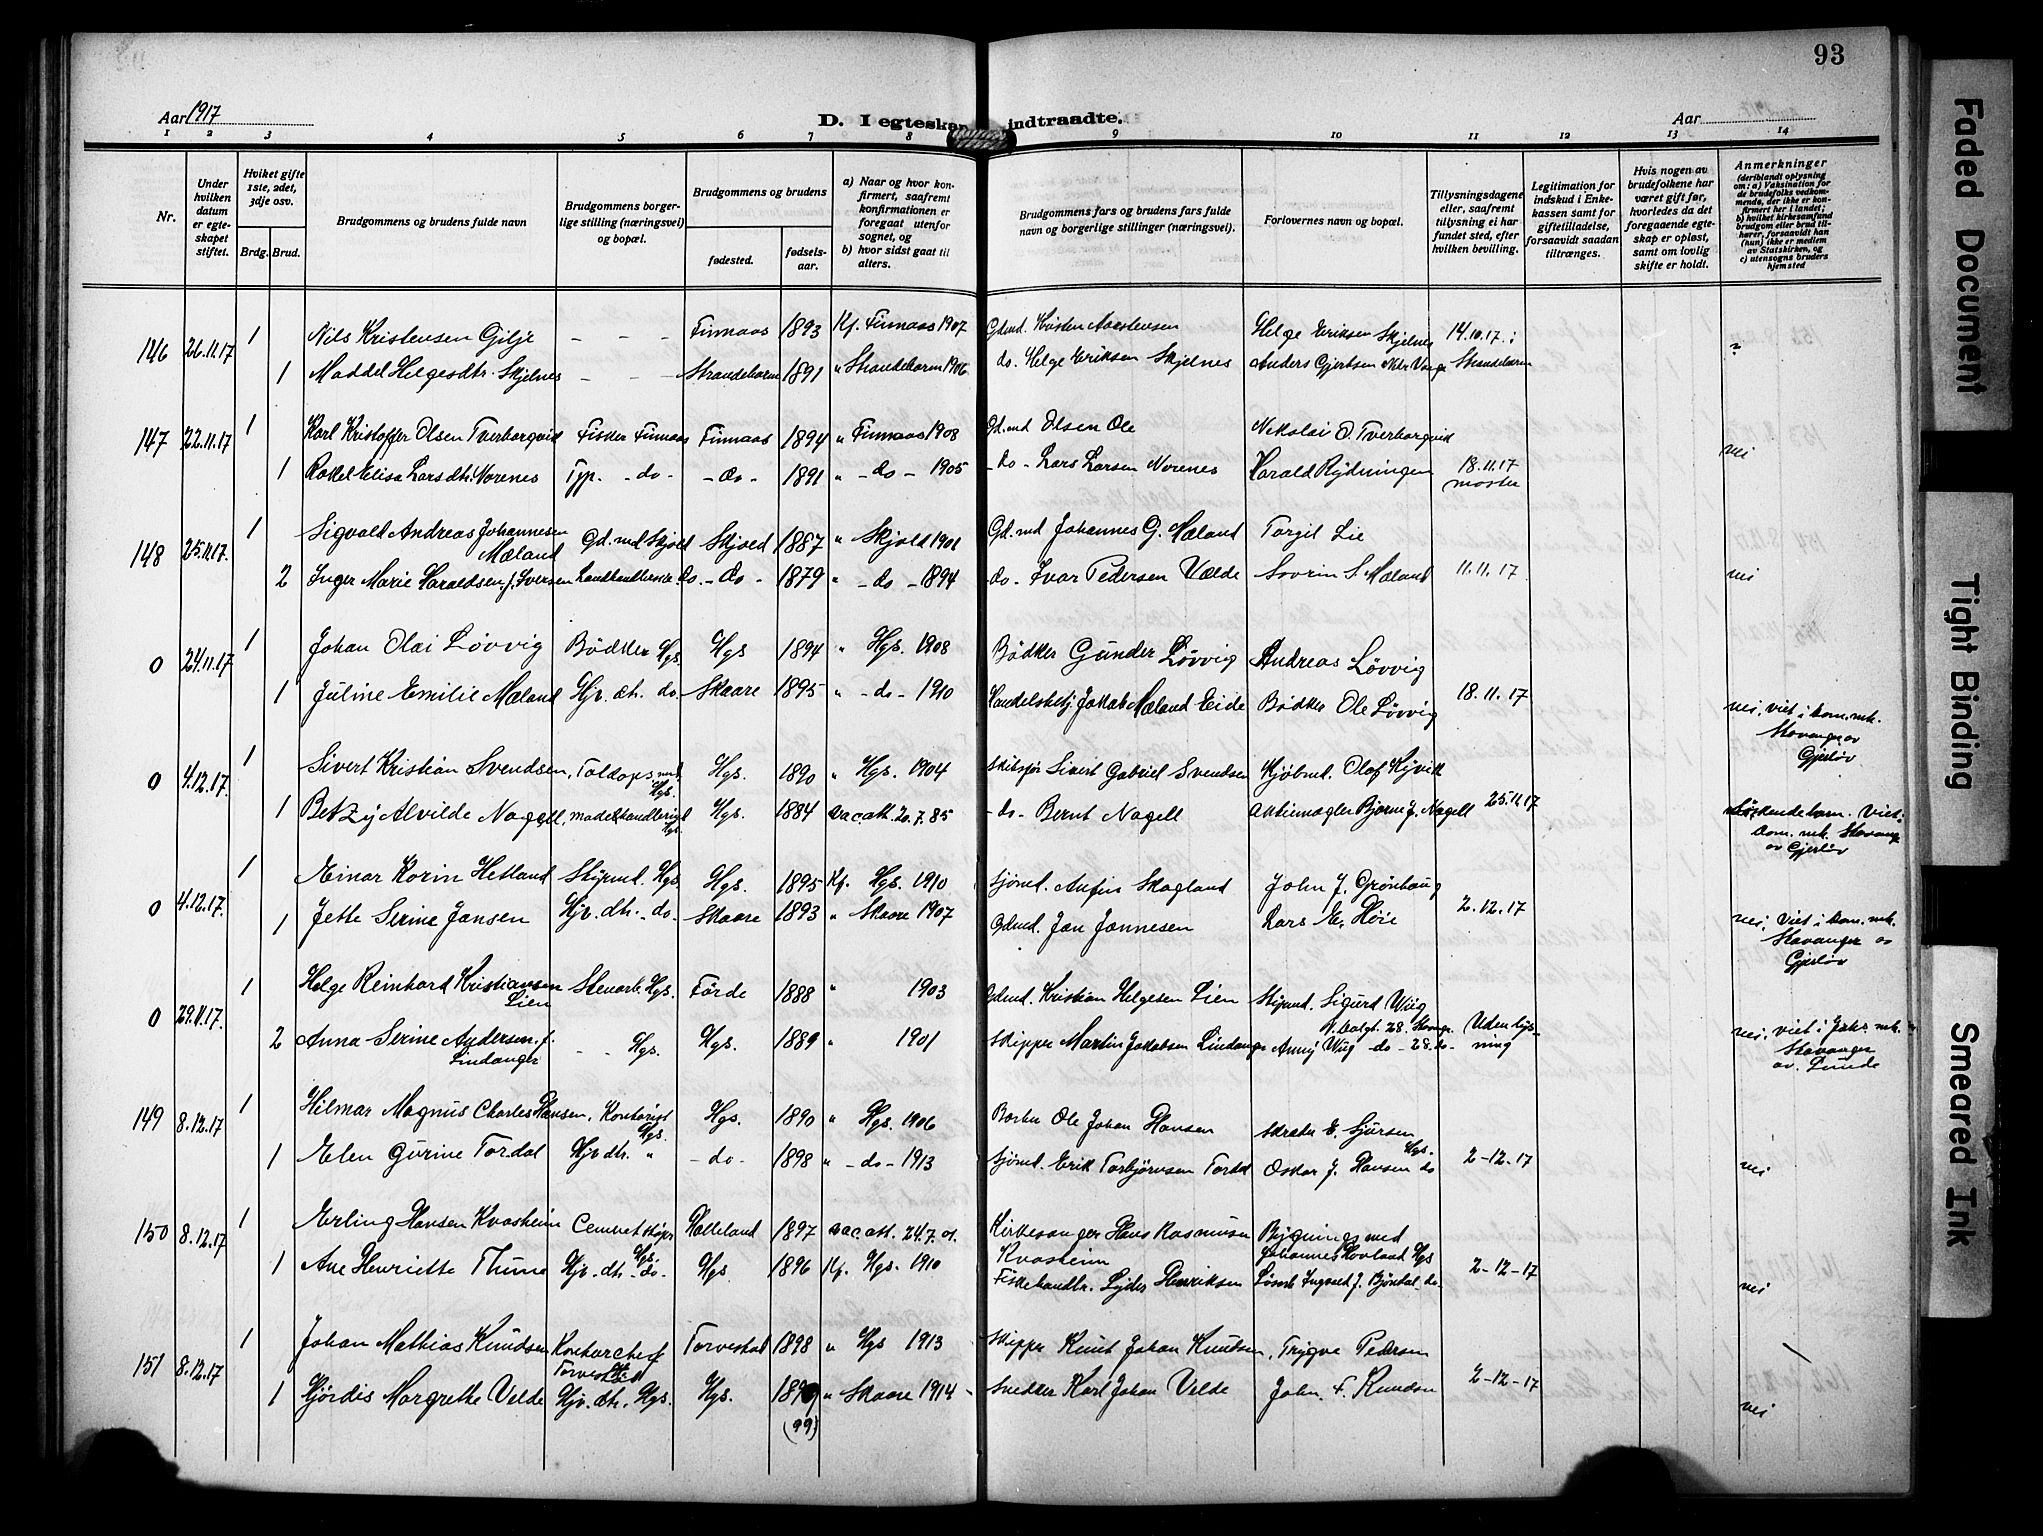 93
Aar 1917
D. I egteskap indtraadte.
Aar
1 2 3 4 5 6 7 8 9 10 11 12 13 14
Nr.
Under hvilken datum er egteskapet stiftet.
Hviket gifte 1ste, 2det, 3dje osv.
Brdg. Brud.
Brudgommens og brudens fulde navn
Brudgommens borgerlige stilling (næringsvei) og bopæl.
Brudgommens og brudens
fødested.
fødselsaar.
a) Naar og hvor konfirmert, saafremt konfirmationen er foregaat utenfor sognet, og
b) hvor sidst gaat til alters.
Brudgommens fars og brudens fars fulde navn og borgerlige stillinger (næringsvei).
Forlovernes navn og bopæl.
Tillysningsdagene eller, saafremt tillysning ei har fundet sted, efter hvilken bevilling.
Legitimation for indskud i Enkekassen samt for giftetilladelse, forsaavidt saadan tiltrænges.
Hvis nogen av brudefolkene har været gift før, hvorledes da det foregaaende egteskap er opløst, samt om lovlig skifte er holdt.
Anmerkninger (deriblandt oplysning om: a) Vaksination for de brudefolks vedkommende, der ikke er konfirmert her i landet; b) hvilket kirkesamfund brudgom eller brud tilhører, forsaavidt han (hun) ikke er medlem av Statskirken, og c) utensogns bruders hjemsted
146 26.11.17 1 Nils Kristensen Gilje - - - Finnaas 1893 Kf. Finnaas 1907 Gdmd. Kristen Aarstensen Helge Eriksen Skjelnes 14.10.17 i
1 Maddel Helgesdtr. Skjelnes - - - Strandebarm 1891 " Strandebarm 1906 do. Helge Eriksen Skjelnes Anders Gjertsen Strandebarm ?
147 22.11.17 1 Karl Kristoffer Olsen Tverborgvik Fisker Finnaas Finnaas 1894 " Finnaas 1908 Gd.md Olsen Ole Nikolai O. Tverborgvik
1 Rakel Elisa Larsdtr. Norenes Typ. - do - - do - 1891 " - do - 1905 - do - Lars Larsen Norenes Harald Rydningen 18.11.17 moster nei
148 25.11.17. 1 Sigvald Andreas Johannesen Mæland Gd. md Skjold Skjold 1887 " Skjold 1901 Gd. md Johannes G. Mæland Torgil Lie
2 Inger Marie Haraldsen f. Iversen Landhandlerske do. - do - 1879 " - do - 1894 - do - Ivar Pedersen Vælde Sovrin S. Mæland 11.11.17 nei
0 24.11.17 1 Johan Olai Løvvig Bødker Hgs. Hgs 1894 " Hgs. 1908 Bødker Gunder Løvvig Andreas Løvvig
1 Juline Emilie Mæland Hjv. dt. do. Skaare 1895 " - do - 1910 Handelsbetj. Jakob Mæland Eide Bødker Ole Løvvig 18.11.17 nei, viet i dom. mk. Stavanger av Gjerløv
0 4.12.17. 1 Sivert Kristian Svendsen, Toldops.md. Hgs. Hgs. 1890 " Hgs. 1904 Skibsfør Sivert Gabriel Svendsen Kjøbmd. Olaf Kyvik
1 Betzy Alvilde Nagell, modehandlerske Hgs. Hgs. 1884 vac. att. 20.7.85 - do - Bernt Nagell Aktiemægler Bjarne J. Nagell 25.11.17 Søskendebarn. Viet i dom. mk. Stavanger av Gjerløv
0 4.12.17. 1 Einar Korin Hetland Skipmd. Hgs. Hgs. 1895 Kf. Hgs. 1910 Sjømd. Anfin Skogland John J. Grønhaug
1 Jette Serine Jansen Hjv. dtr. - do - Skaare 1893 " Skaare 1907 Gdmd. Jan Jannesen Lars E. Høie 2.12.17 nei, viet i dom. mk. Stavanger av Gjerløv
0 29.11.17. 1 Helge Reinhard Kristiansen Lien Stenarb. Hgs. Førde 1888 " 1903 Gdmd. Kristian Helgesen Lien Skipmd. Sigurd Wiig
2 Anna Serine Andersen f. Lindanger - - Hgs. Hgs. 1889 " 1901 Skipper Martin Jakobsen Lindanger Anny Wiig - do - 28. do - Uden lysning nei, viet i Jahs mk. Stavanger av. Lunde
149 8.12.17 1 Hilmar Magnus Charles Hansen, Kontorist Hgs. Hgs. 1890 " Hgs. 1906 Ole Johan Hansen Skræder E. Sjursen Hgs.
1 Elen Gurine Tordal Hjv. dtr. " - do - 1898 " - do - 1913 Sjømd. Erik Torbjørnsen Tordal Oskar J. Hansen do 2-12-17 nei
150 8.12.17 1 Erling Hansen Kvasheim Cementstøper Hgs. Helleland 1897 vac. att. 24.7.01. Kirkesanger Hans Rasmusen Kvasheim Bygningsmd Johannes Hovland Hgs
1 Ane Henriette Thune Hjv. dtr - do - Hgs 1896 Kf. Hgs. 1910 Fiskehandlr. Lyder Henriksen Ingvald J. Bjørdal - do - 2-12-17 nei
151 8.12.17 1 Johan Mathias Knudsen Kontorchef Torvestad Torvestad 1898 " Hgs 1913 Skipper Knut Johan Knutsen, Trygve Pedersen
1 Hjørdis Margrethe Velde Hjv. dtr. Hgs. Hgs. 1899 (99) " Skaare 1914 - Snedker Karl Johan Velde John. F. Knudsen 2-12-17 nei
Faded Document
Tight Binding
Smeared Ink